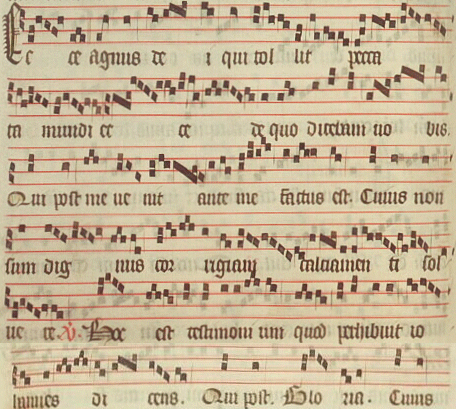 Ec ce agnus de i qui tol lit pecca
ta mundi ec ce de quo dicebam vo bis.
Qui post me ve nit ante me factus est. Cuius non
sum dig nus cor rigiam calciamen ti sol
ve re. V. Hoc est testimoni um quod perhibuit io
hannes di cens. Qui post. Glo ria. Cuius